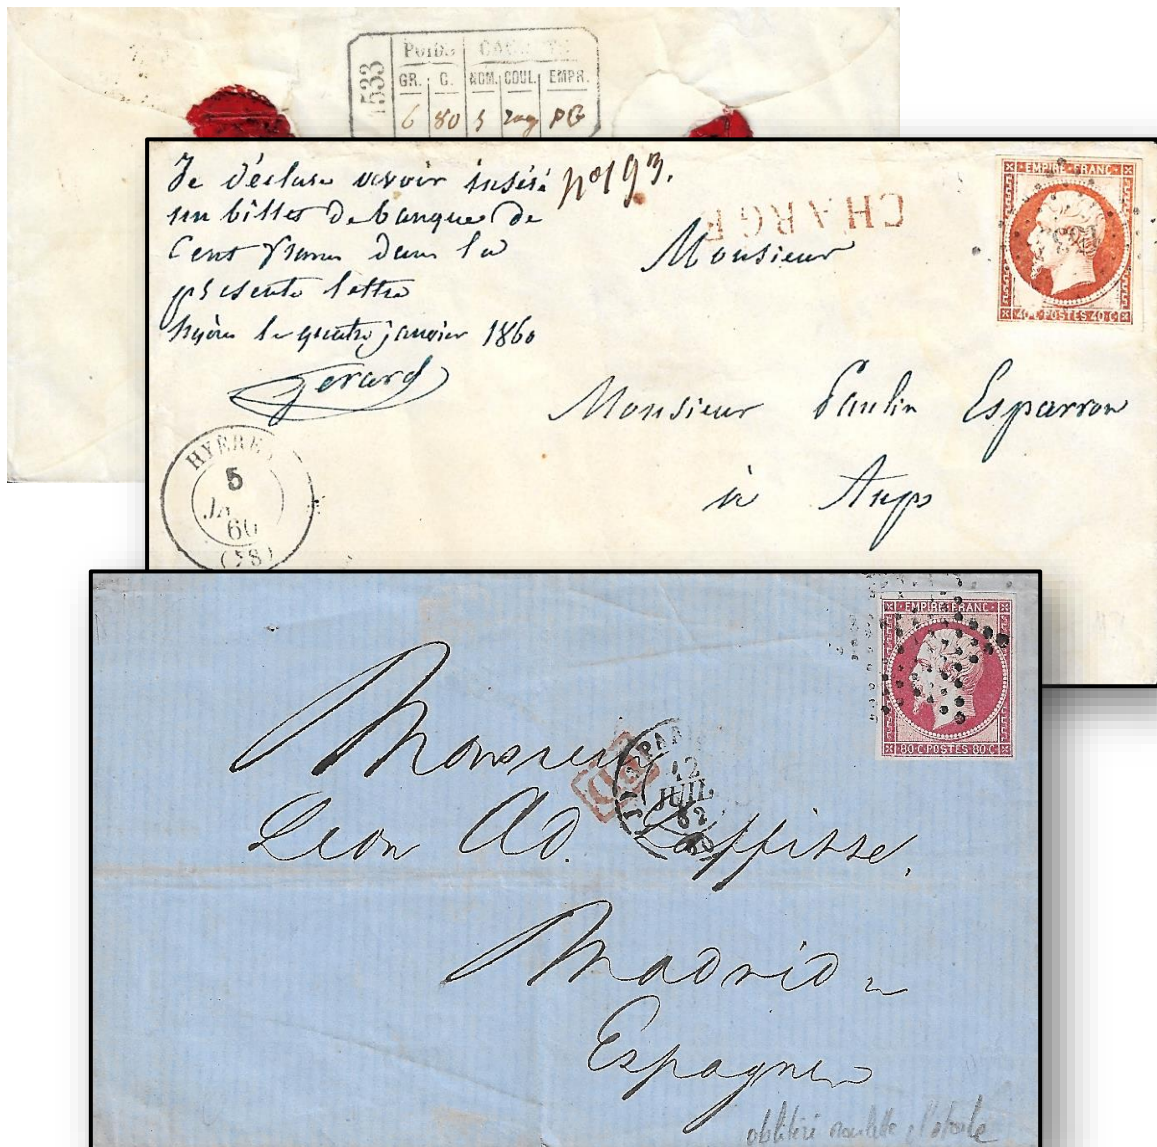 1533
POIDS
GR. C. NOM. COUL. EMPR.
6 80 5 rug PG
Je déclare avoir inséré
un billet de banque de
Cent francs dans la
présente lettre
hyères le quatre janvier 1860
Gerard
no 193.
CHARGÉ
EMPIRE FRANC
40 C POSTES 40 C
Monsieur
Monsieur Paulin Esparron
à Aups
HYÈRES
5
JANV
60
EMPIRE FRANC
80 C POSTES 80 C
PARIS
12
JUIL
62
60
Monsieur
Leon Ad. Laffitte.
Madrid
Espagne
oblitéré roulette d'étoile